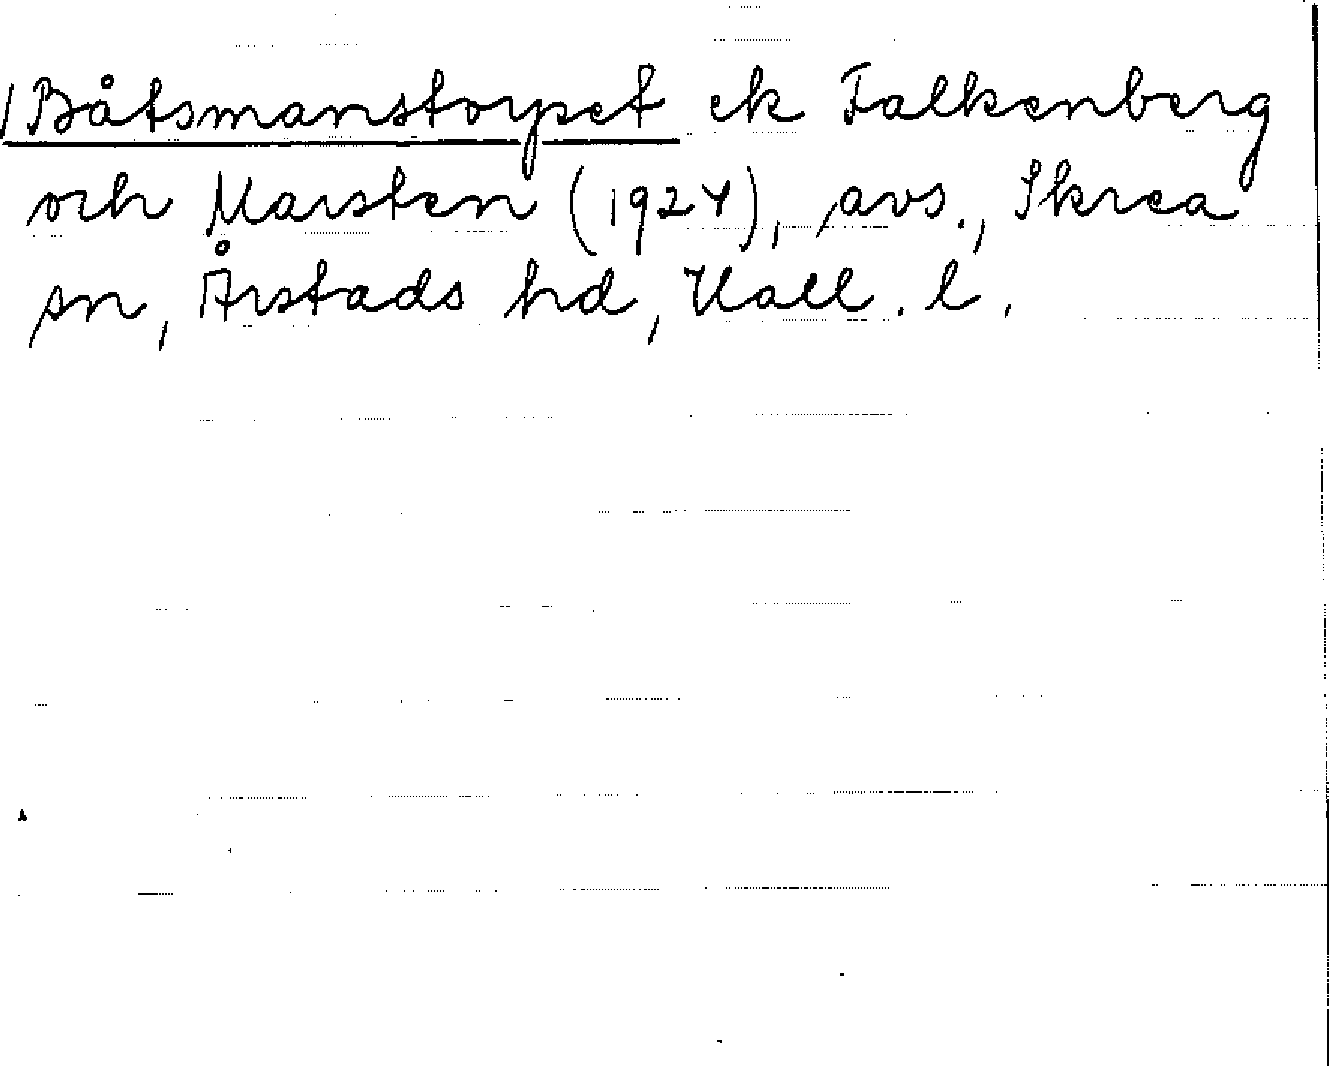 Båtsmanstorpet ek Falkenberg
och Marsten (1924), avs., Skrea
sn, Årstads hd, Hall. l.